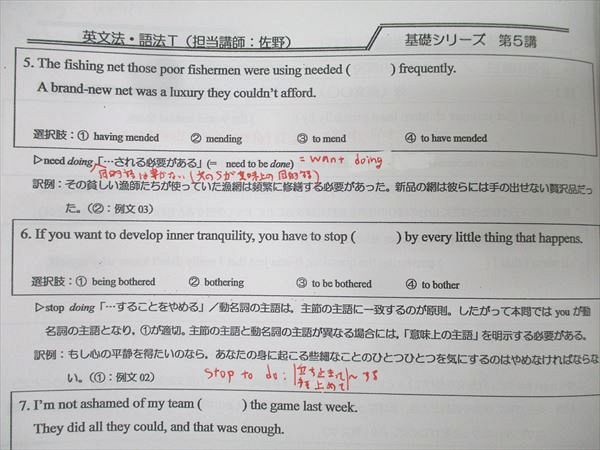 英文法・語法T（担当講師：佐野）
基礎シリーズ 第5講
5. The fishing net those poor fishermen were using needed (　　) frequently.
A brand-new net was a luxury they couldn't afford.
選択肢：① having mended ② mending ③ to mend ④ to have mended
▷need doing「…される必要がある」(= need to be done) = want doing
目的語は書かない(文のSが意味上の目的語)
訳例：その貧しい漁師たちが使っていた漁網は頻繁に修繕する必要があった。新品の網は彼らには手の出せない贅沢品だっ
た。（②：例文 03）
6. If you want to develop inner tranquility, you have to stop (　　) by every little thing that happens.
選択肢：① being bothered ② bothering ③ to be bothered ④ to bother
▷stop doing「…することをやめる」／動名詞の主語は，主節の主語に一致するのが原則。したがって本問では you が動
名詞の主語となり，①が適切。主節の主語と動名詞の主語が異なる場合には，「意味上の主語」を明示する必要がある。
訳例：もし心の平静を得たいのなら，あなたの身に起こる些細なことのひとつひとつを気にするのはやめなければならな
い。（①：例文 02）
stop to do：立ち止まって〜する
手を止めて
7. I'm not ashamed of my team (　　) the game last week.
They did all they could, and that was enough.